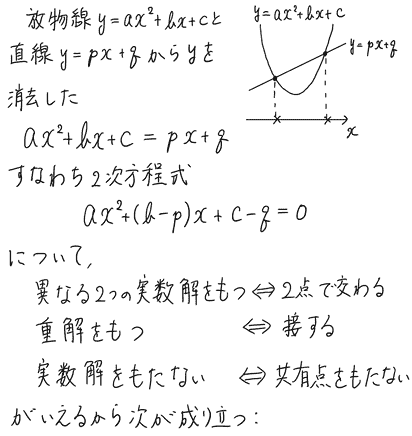 放物線 y=ax²+bx+c と
直線 y=px+q から y を
消去した
ax²+bx+c = px+q
すなわち2次方程式
ax²+(b-p)x+c-q=0
について,
異なる2つの実数解をもつ ⇔ 2点で交わる
重解をもつ ⇔ 接する
実数解をもたない ⇔ 共有点をもたない
がいえるから次が成り立つ:
y=ax²+bx+c
y=px+q
x